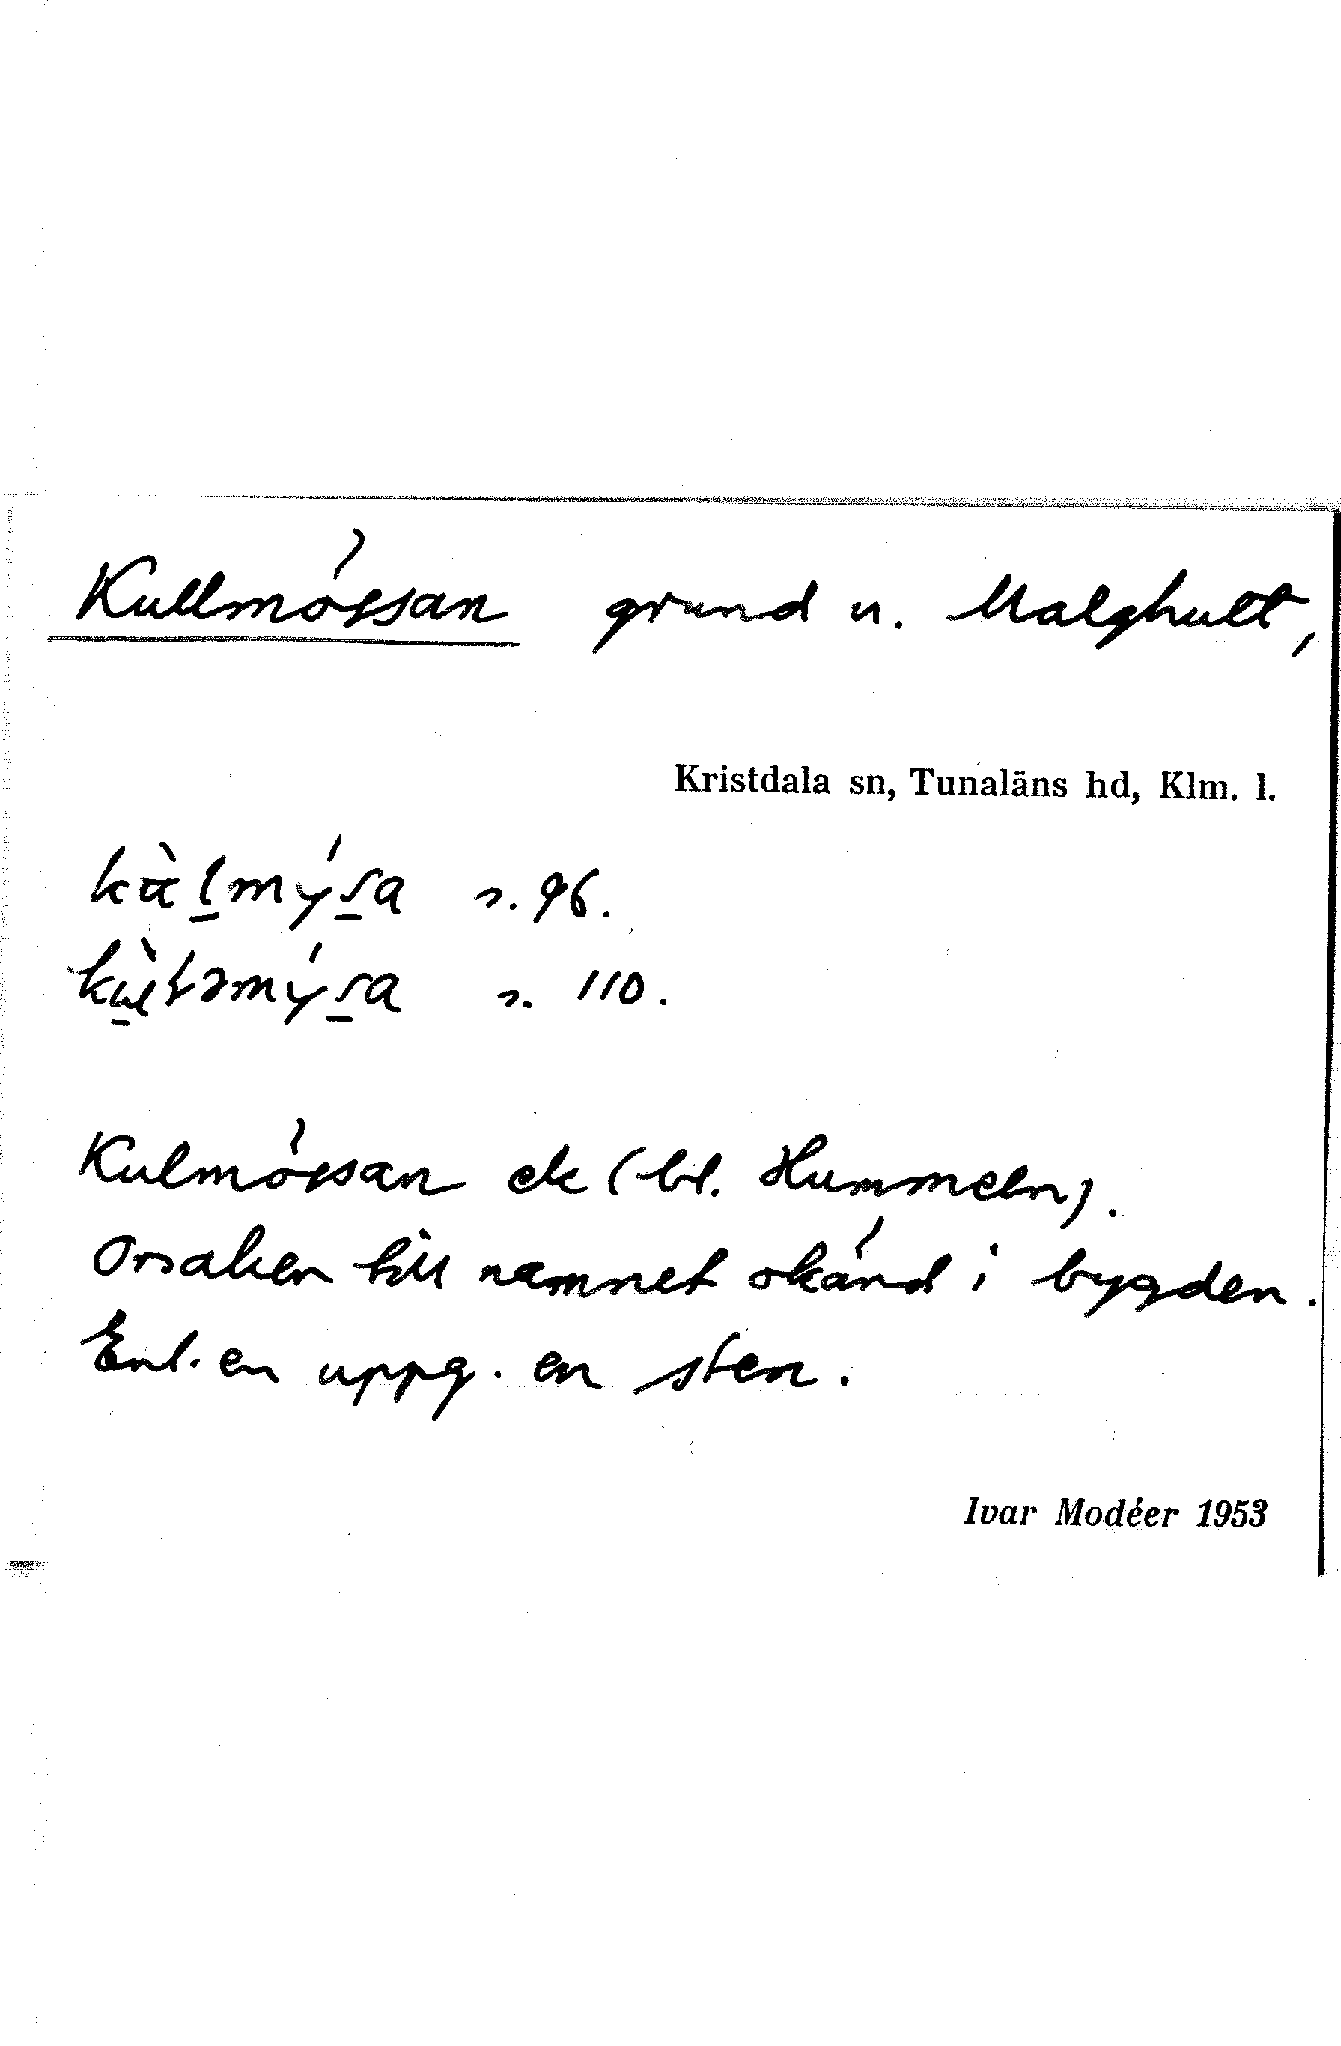 Kullmössan grund u. Malghult,
Kristdala sn, Tunaläns hd, Klm. l.
s. 96.
s. 110.
Kulmössan ek (bl. Hummeln).
Orsaken till namnet okänd i bygden.
Enl. en uppg. en sten.
Ivar Modéer 1953